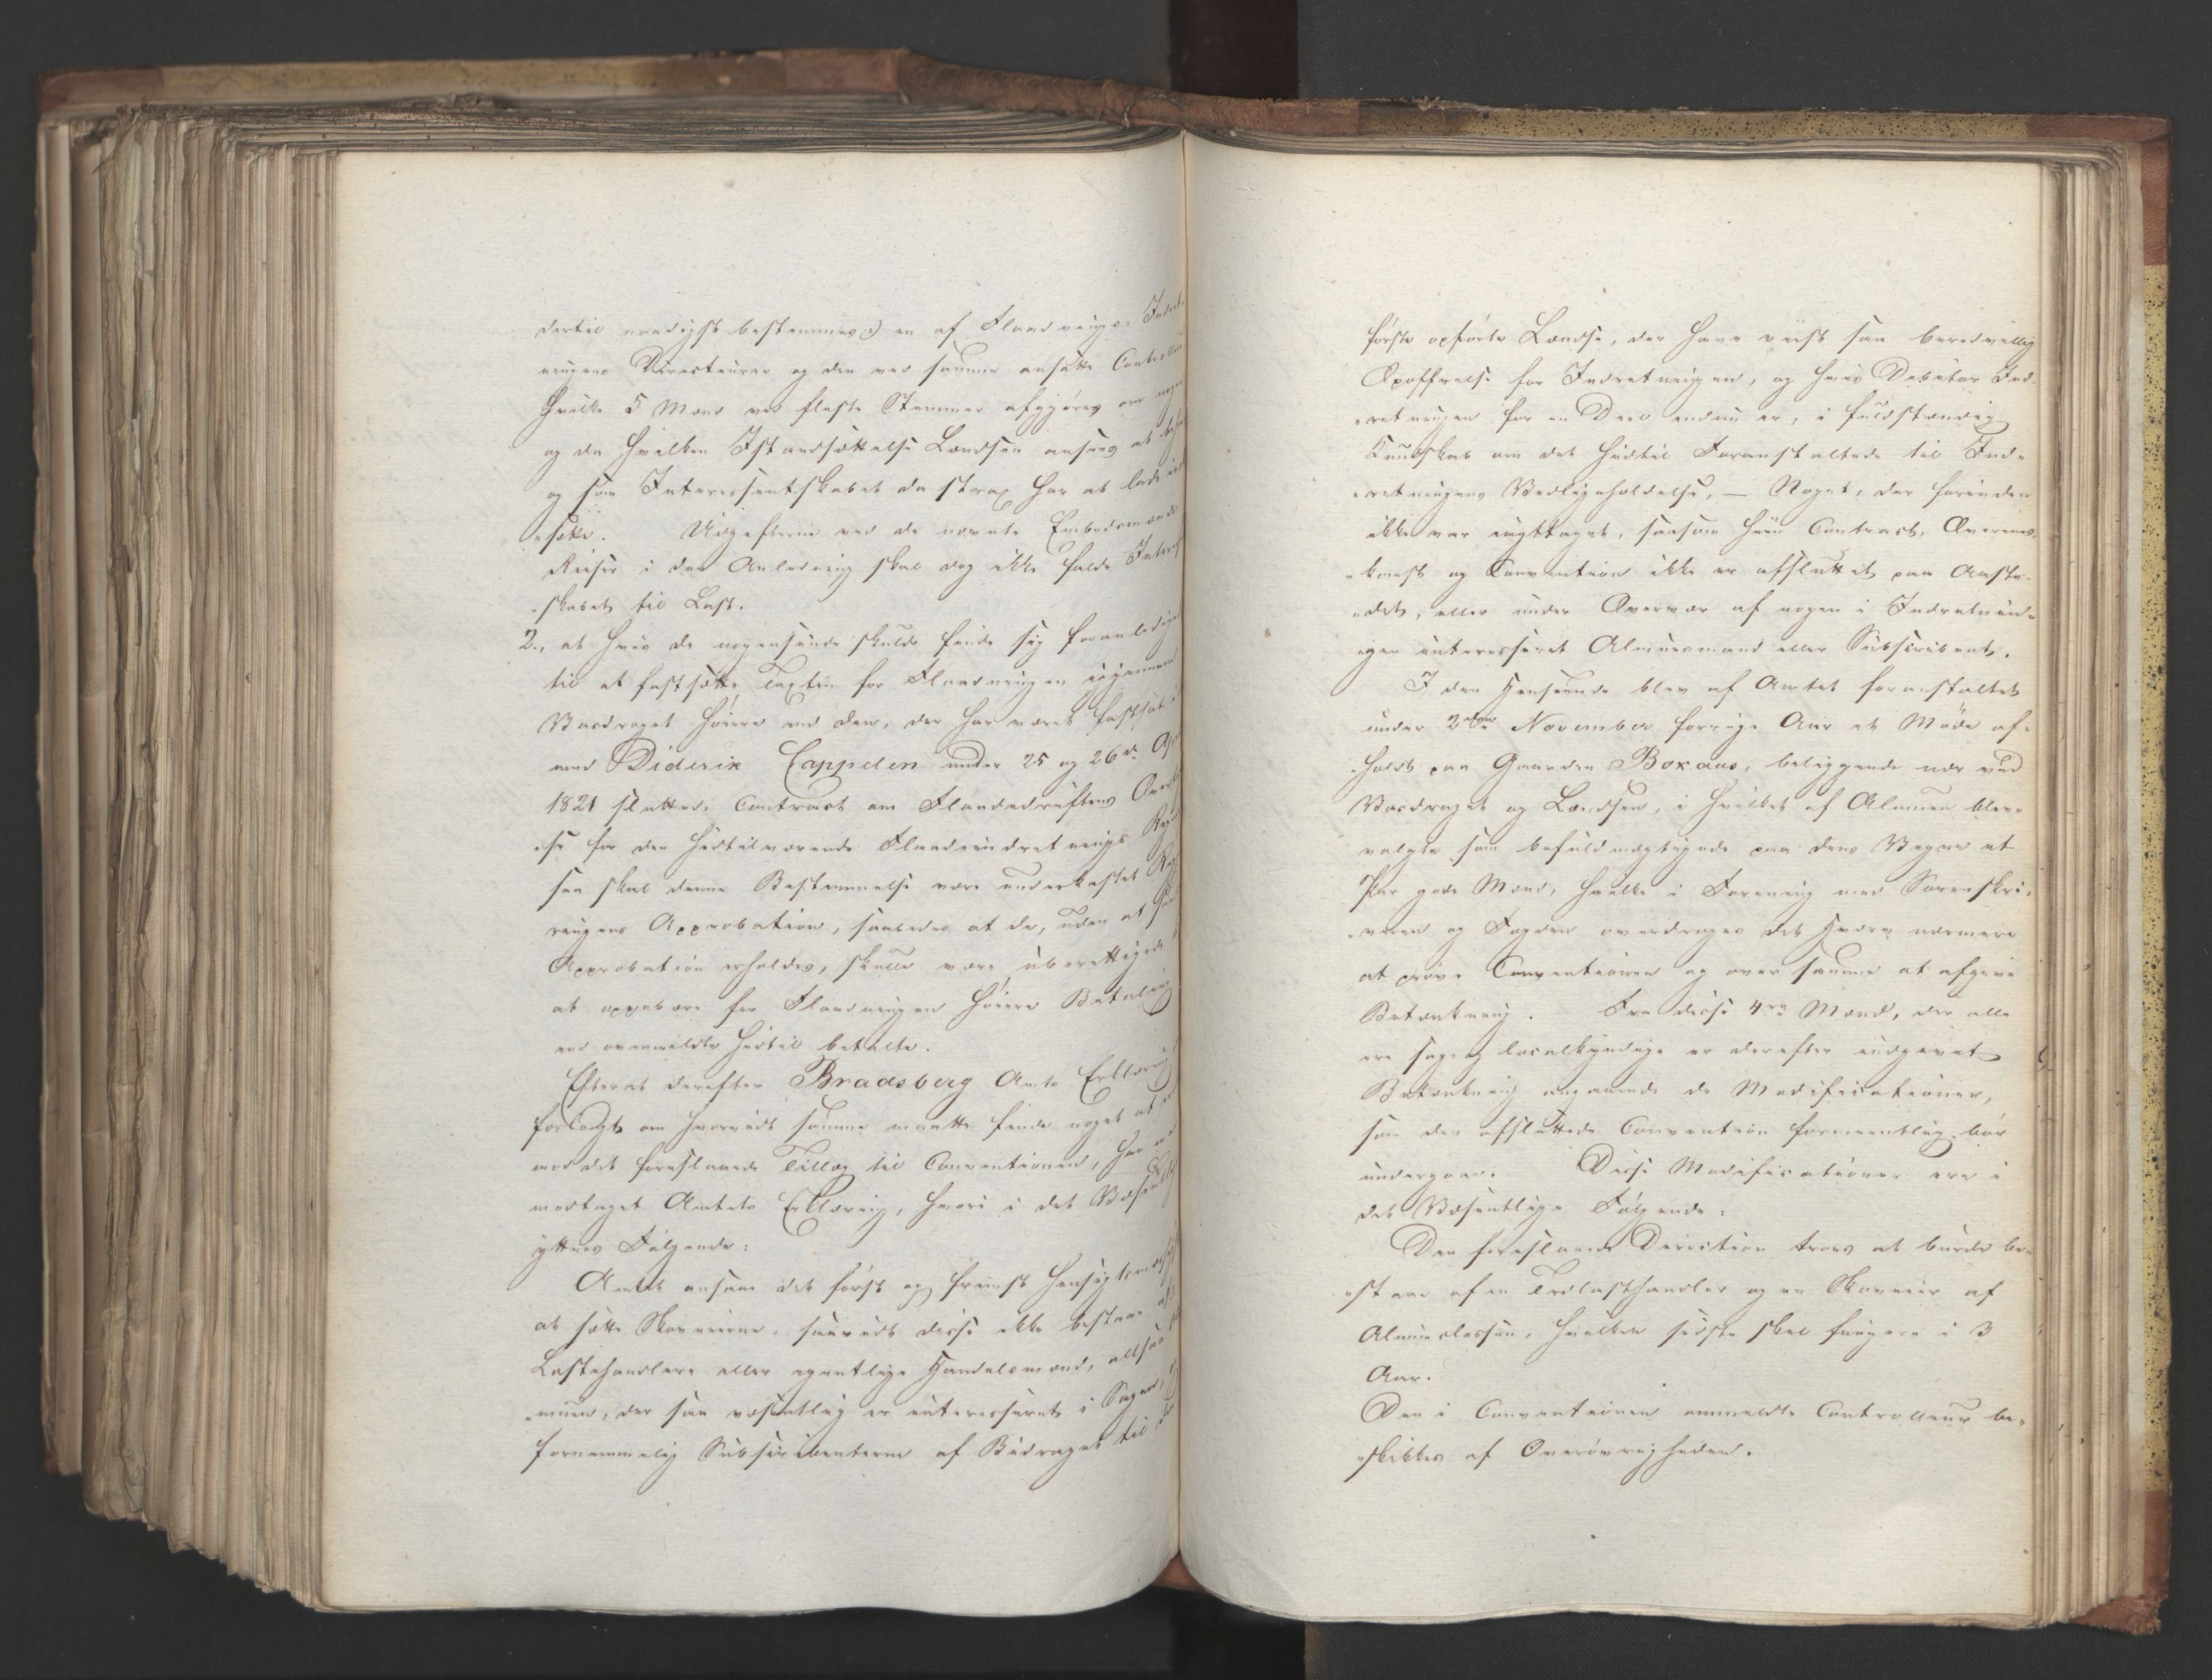 dertil naadigst bestemmes:) en af Flaadnings-Indret-
ningens Directeurer og den ved samme ansatte Controlleur
hvilke 5 Mænd ved fleste Stemmer afgjøres om nogen
og da hvilken Istandsættelse Lændsen ansees at
og som Interessentskabet da strax har at lade
sætte. Udgifterne ved de nævnte Embedsmænds
Reiser i den Anledning skal dog ikke falde Interes-
-skabet til Last.
2., at hvis de nogensinde skulde finde sig foranlediget
til at fastsætte Taxten for Flaadningen igjennem
Vasdraget høiere end den, der har været fastsat i
med Diderik Cappelen under 25 og 26de
1821 sluttede Contract om Flaadedriftens
-se for den hidtilværende Flaadeindretnings
saa skal denne Bestemmelse være underkastet Reg-
ringens Approbation, saaledes at de, uden at
Approbation erholdes, skulle være uberettigede
at oppebære for Flaadningen høiere Betaling
end ovenmeldte hidtil betalte.
Efterat derefter Bradsberg Amts Erklæring
forlangt om hvorvidt samme maatte finde noget at
mod det foreslaaede Tillæg til Conventionen, har
modtaget Amtets Erklæring, hvori i det Væsentlige
yttres Følgende:
Amtet ansaae det først og fremst hensigtsmæssigt
at sætte Skoveierne, saavidt disse ikke bestaae af
Lasthandlere eller egentlige Handelsmænd, altsaa
-muen, der saa væsentlig er interesseret i Sagen,
fornemmelig Subscribenterne af Bidraget til
første opførte Lændse, der have viist saa beredvillig
Opoffrelse for Indretningen, og hvis Debitor Ind-
-retningen for en Deel endnu er, i fuldstændig
Kundskab om det hidtil Foranstaltede til Ind-
-retningens Vedligeholdelse, — Noget, der forinden
ikke var iagttaget, saasom hiin Contract, Overens-
-komst og Convention ikke er afsluttet paa Aaste-
-det, eller under Overvær af nogen i Indretnin-
-gen interesseret Almuesmand eller Subscribent.
I den Henseende blev af Amtet foranstaltet
under 2den November forrige Aar et Møde af-
-holdt paa Gaarden Boxaas, beliggende nær ved
Vasdraget og Lændsen, i hvilket af Almuen blev
valgte som befuldmægtigede paa dens Vegne et
Par gode Mænd, hvilke i Forening med Sorenskri-
-veren og Fogden overdroges det Hverv nærmere
at prøve Conventionen og over samme at afgive
Betænkning. Fra disse 4re Mænd, der alle
ere sag og localkyndige er derefter indgivet
Betænkning angaaende de Modificationer,
som den afsluttede Convention formeentlig bør
undergaae. Disse Modificationer ere i
det Væsentlige Følgende:
Den foreslaaede Direction troes at burde be-
-staae af en Trælasthandler og en Skoveier af
Almueclassen, hvilken sidste skal fungere i 3
Aar.
Den i Conventionen ommeldte Controlleur be-
-skikkes af Overøvrigheden.